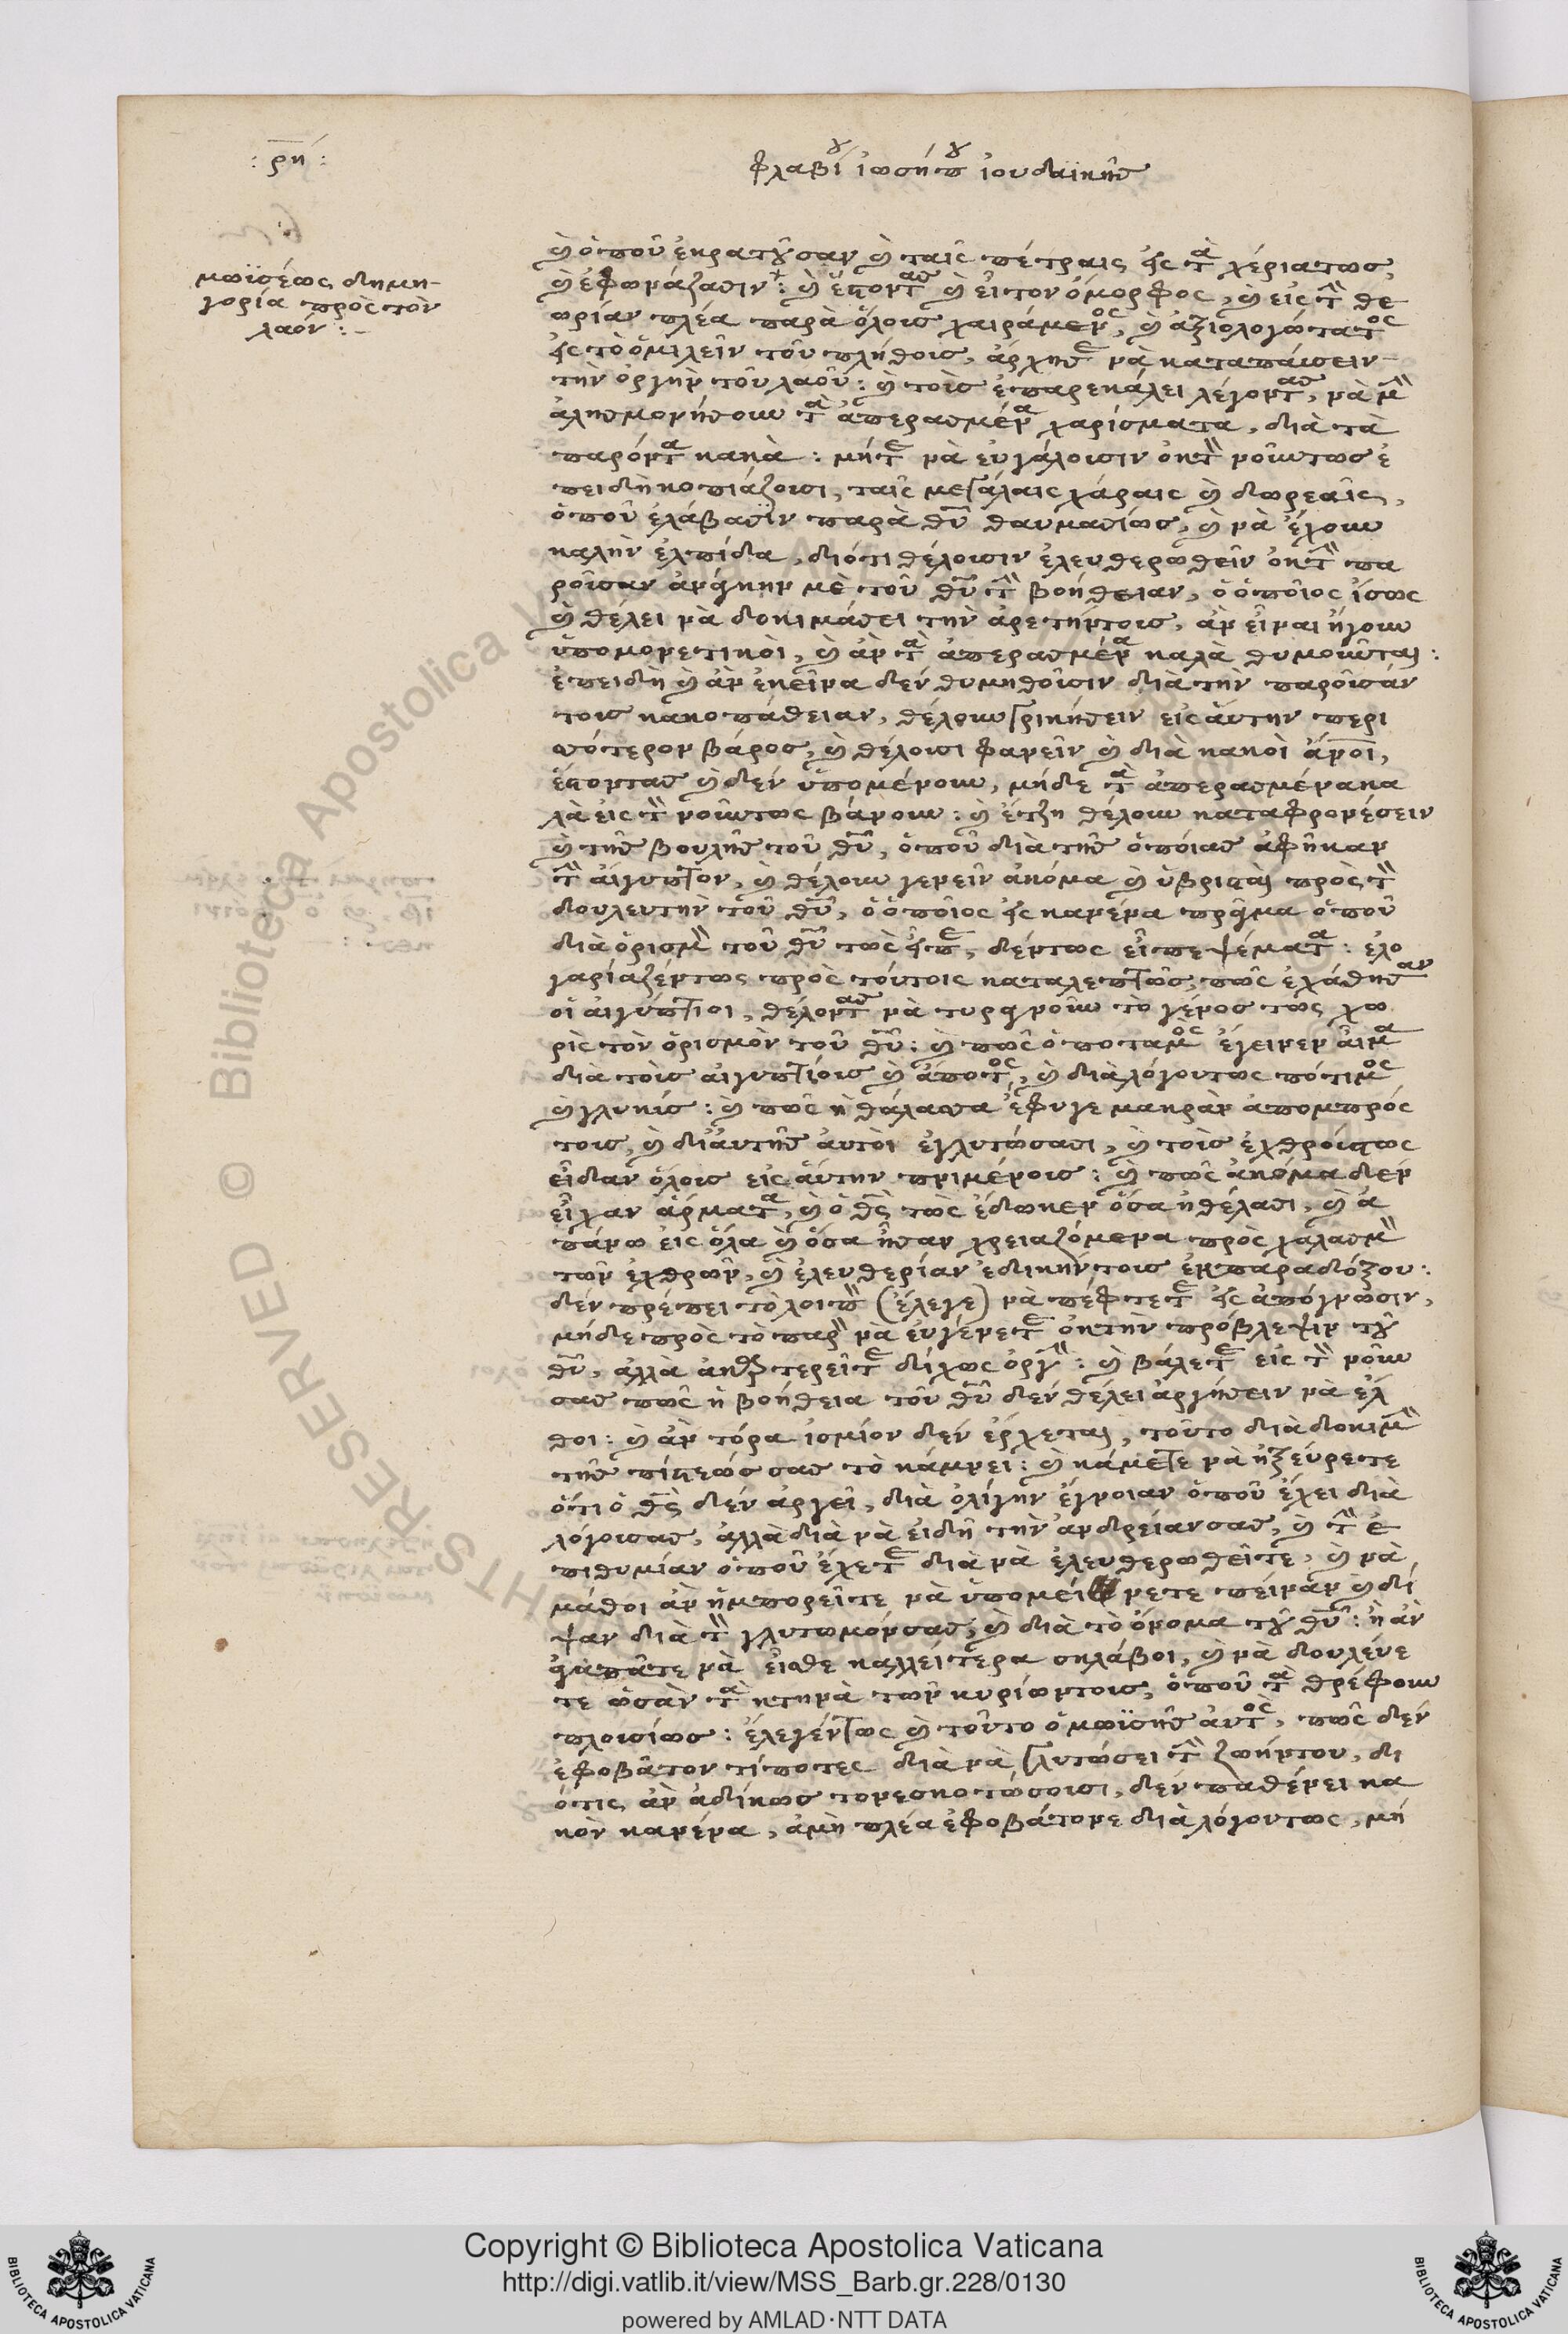 : ρη :
φλαβίου ἰωσήπου ἰουδαϊκῆς
μωϊσέως δημη-
γορία πρὸς τὸν
λαόν : -
καὶ ὁποῦ ἐκρατοῦσαν καὶ ταῖς πέτραις εἰς τὰ χέριατως,
καὶ ἐφωνάζασιν : καὶ ἔστοντας καὶ εἶτον ὄμορφος, καὶ εἰς τὴν θε
ωρίαν πλέα παρὰ ὅλους χαιράμενος, καὶ ἀξιολογώτατος
εἰς τὸ ὁμιλεῖν τοῦ πλήθους, ἄρχησε νὰ καταπαύσειν
τὴν ὀργὴν τοῦ λαοῦ : καὶ τοὺς ἐπαρεκάλει λέγοντας, νὰ μὴν
ἀλησμονήσουν τὰ ἀπερασμένα χαρίσματα, διὰ τὰ
παρόντα κακὰ : μήτε νὰ εὐγάλουσιν ὀκτὸν νοῦντως ἐ
πειδὴ κοπιάζουσι, ταῖς μεγάλαις χάραις καὶ δωρεαῖς,
ὁποῦ ἐλάβασιν παρὰ θῦ θαυμασίως, καὶ νὰ ἔχουν
καλὴν ἐλπίδα, διότι θέλουσιν ἐλευθερωθεῖν ὀκτὴν πα
ροῦσαν ἀνάγκην μὲ τοῦ θῦ τὴν βοήθειαν, ὁ ὁποῖος ἴσως
καὶ θέλει νὰ δοκιμάσει τὴν ἀρετήντους, ἂν εἶναι ἤγουν
ὑπομονετικοὶ, καὶ ἂν τὰ ἀπερασμένα καλὰ θυμοῦνται :
ἐπειδὴ καὶ ἂν ἐκεῖνα δὲν θυμηθοῦσιν διὰ τὴν παροῦσάν
τους κακοπάθειαν, θέλουν γρικήσειν εἰς αὔτην περι
σσότερον βάρος, καὶ θέλουσι φανεῖν καὶ διὰ κακοὶ ἄνοι,
ἔστοντας καὶ δὲν ὑπομένουν, μήδε τὰ ἀπερασμένα κα
λὰ εἰς τὸν νοῦντως βάνουν : καὶ ἔτζη θέλουν καταφρονέσειν
καὶ τῆς βουλῆς τοῦ θῦ, ὁποῦ διὰ τῆς ὁποίας ἀφῆκαν
τὴν αἴγυπτον, καὶ θέλουν γενεῖν ἀκόμα καὶ ὑβρισταὶ πρὸς τὸν
δουλευτὴν τοῦ θῦ, ὁ ὁποῖος εἰς κανένα πρᾶγμα ὁποῦ
διὰ ὁρισμὸν τοῦ θῦ τῶς εἶπε, δέντως εἶπε ψέματα : ἐλο
γαρίαζέντως πρὸς τούτοις καταλεπτῶς, πῶς ἐχάθησαν
οἱ αἰγύπτιοι, θέλοντας νὰ τυραννοῦν τὸ γένος τως χω
ρὶς τὸν ὁρισμὸν τοῦ θῦ : καὶ πῶς ὁ ποταμὸς ἔγεινεν αἷμα
διὰ τοὺς αἰγυπτίους καὶ ἄποτος, καὶ διὰ λόγουντως πότιμος
καὶ γλυκύς : καὶ πῶς ἡ θάλασσα ἔφυγε μακρὰν ἀπομπρός
τους, καὶ δι' αὐτῆς αὐτοὶ ἐγλυτώσασι, καὶ τοὺς ἐχθρούςτως
εἶδαν ὅλους εἰς αὔτην πνιμένους : καὶ πῶς ἀκόμα δὲν
εἶχαν ἄρματα, καὶ ὁ θς τῶς ἔδωκεν ὅσα ἠθέλασι, καὶ ἀ
πάνω εἰς ὅλα καὶ ὅσα ἦσαν χρειαζόμενα πρὸς χαλασμὸν
τῶν ἐχθρῶν, καὶ ἐλευθερίαν ἐδικήντους ἐκ παραδόξου :
δὲν πρέπει τὸ λοιπὸν (ἔλεγε) νὰ πέφτετε εἰς ἀπόγνωσιν,
μήδε πρὸς τὸ παρὸν νὰ εὐγένετε ὀκτὴν πρόβλεψιν τοῦ
θῦ, ἀλλὰ ἀκαρτερεῖτε δίχως ὀργὴν : καὶ βάλετε εἰς τὸν νοῦν
σας πῶς ἡ βοήθεια τοῦ θῦ δὲν θέλει ἀργήσειν νὰ ἔλ
θοι : καὶ ἂν τόρα ἰσμίον δὲν ἔρχεται, τοῦτο διὰ δοκιμὴν
τῆς πίστεώς σας τὸ κάμνει : καὶ κάμετε νὰ ἠξεύρετε
ὅτι ὁ θς δὲν ἀργεῖ, διὰ ὀλίγην ἔγνοιαν ὁποῦ ἔχει διὰ
λόγουσας, ἀλλὰ διὰ νὰ εἰδῆ τὴν ἀνδρείανσας, καὶ τὴν ἐ
πιθυμίαν ὁποῦ ἔχετε διὰ νὰ ἐλευθερωθεῖτε, καὶ νὰ
μάθοι ἂν ἠμπορεῖτε νὰ ὑπομείνετε πείναν καὶ δί
ψαν διὰ τὸν γλυτωμόνσας, καὶ διὰ τὸ ὄνομα τοῦ θῦ : ἢ ἂν
ἀγαπᾶτε νὰ εἶσθε καλλείτερα σκλάβοι, καὶ νὰ δουλεύε
τε ὡσὰν τὰ κτηνὰ τῶν κυρίωντους, ὁποῦ τὰ θρέφουν
πλουσίως : ἐλεγέντως καὶ τοῦτο ὁ μωϊσῆς αὐτὸς, πῶς δὲν
ἐφοβᾶτον τίποτες διὰ νὰ γλυτώσει τὴν ζωήντου, δι
ότις ἂν ἀδίκως τονεσκοτώσουσι, δὲν παθένει κα
κὸν κανένα, ἀμὴ πλέα ἐφοβάτονε διὰ λόγουντως, μή
Copyright © Biblioteca Apostolica Vaticana
http://digi.vatlib.it/view/MSS_Barb.gr.228/0130
powered by AMLAD·NTT DATA